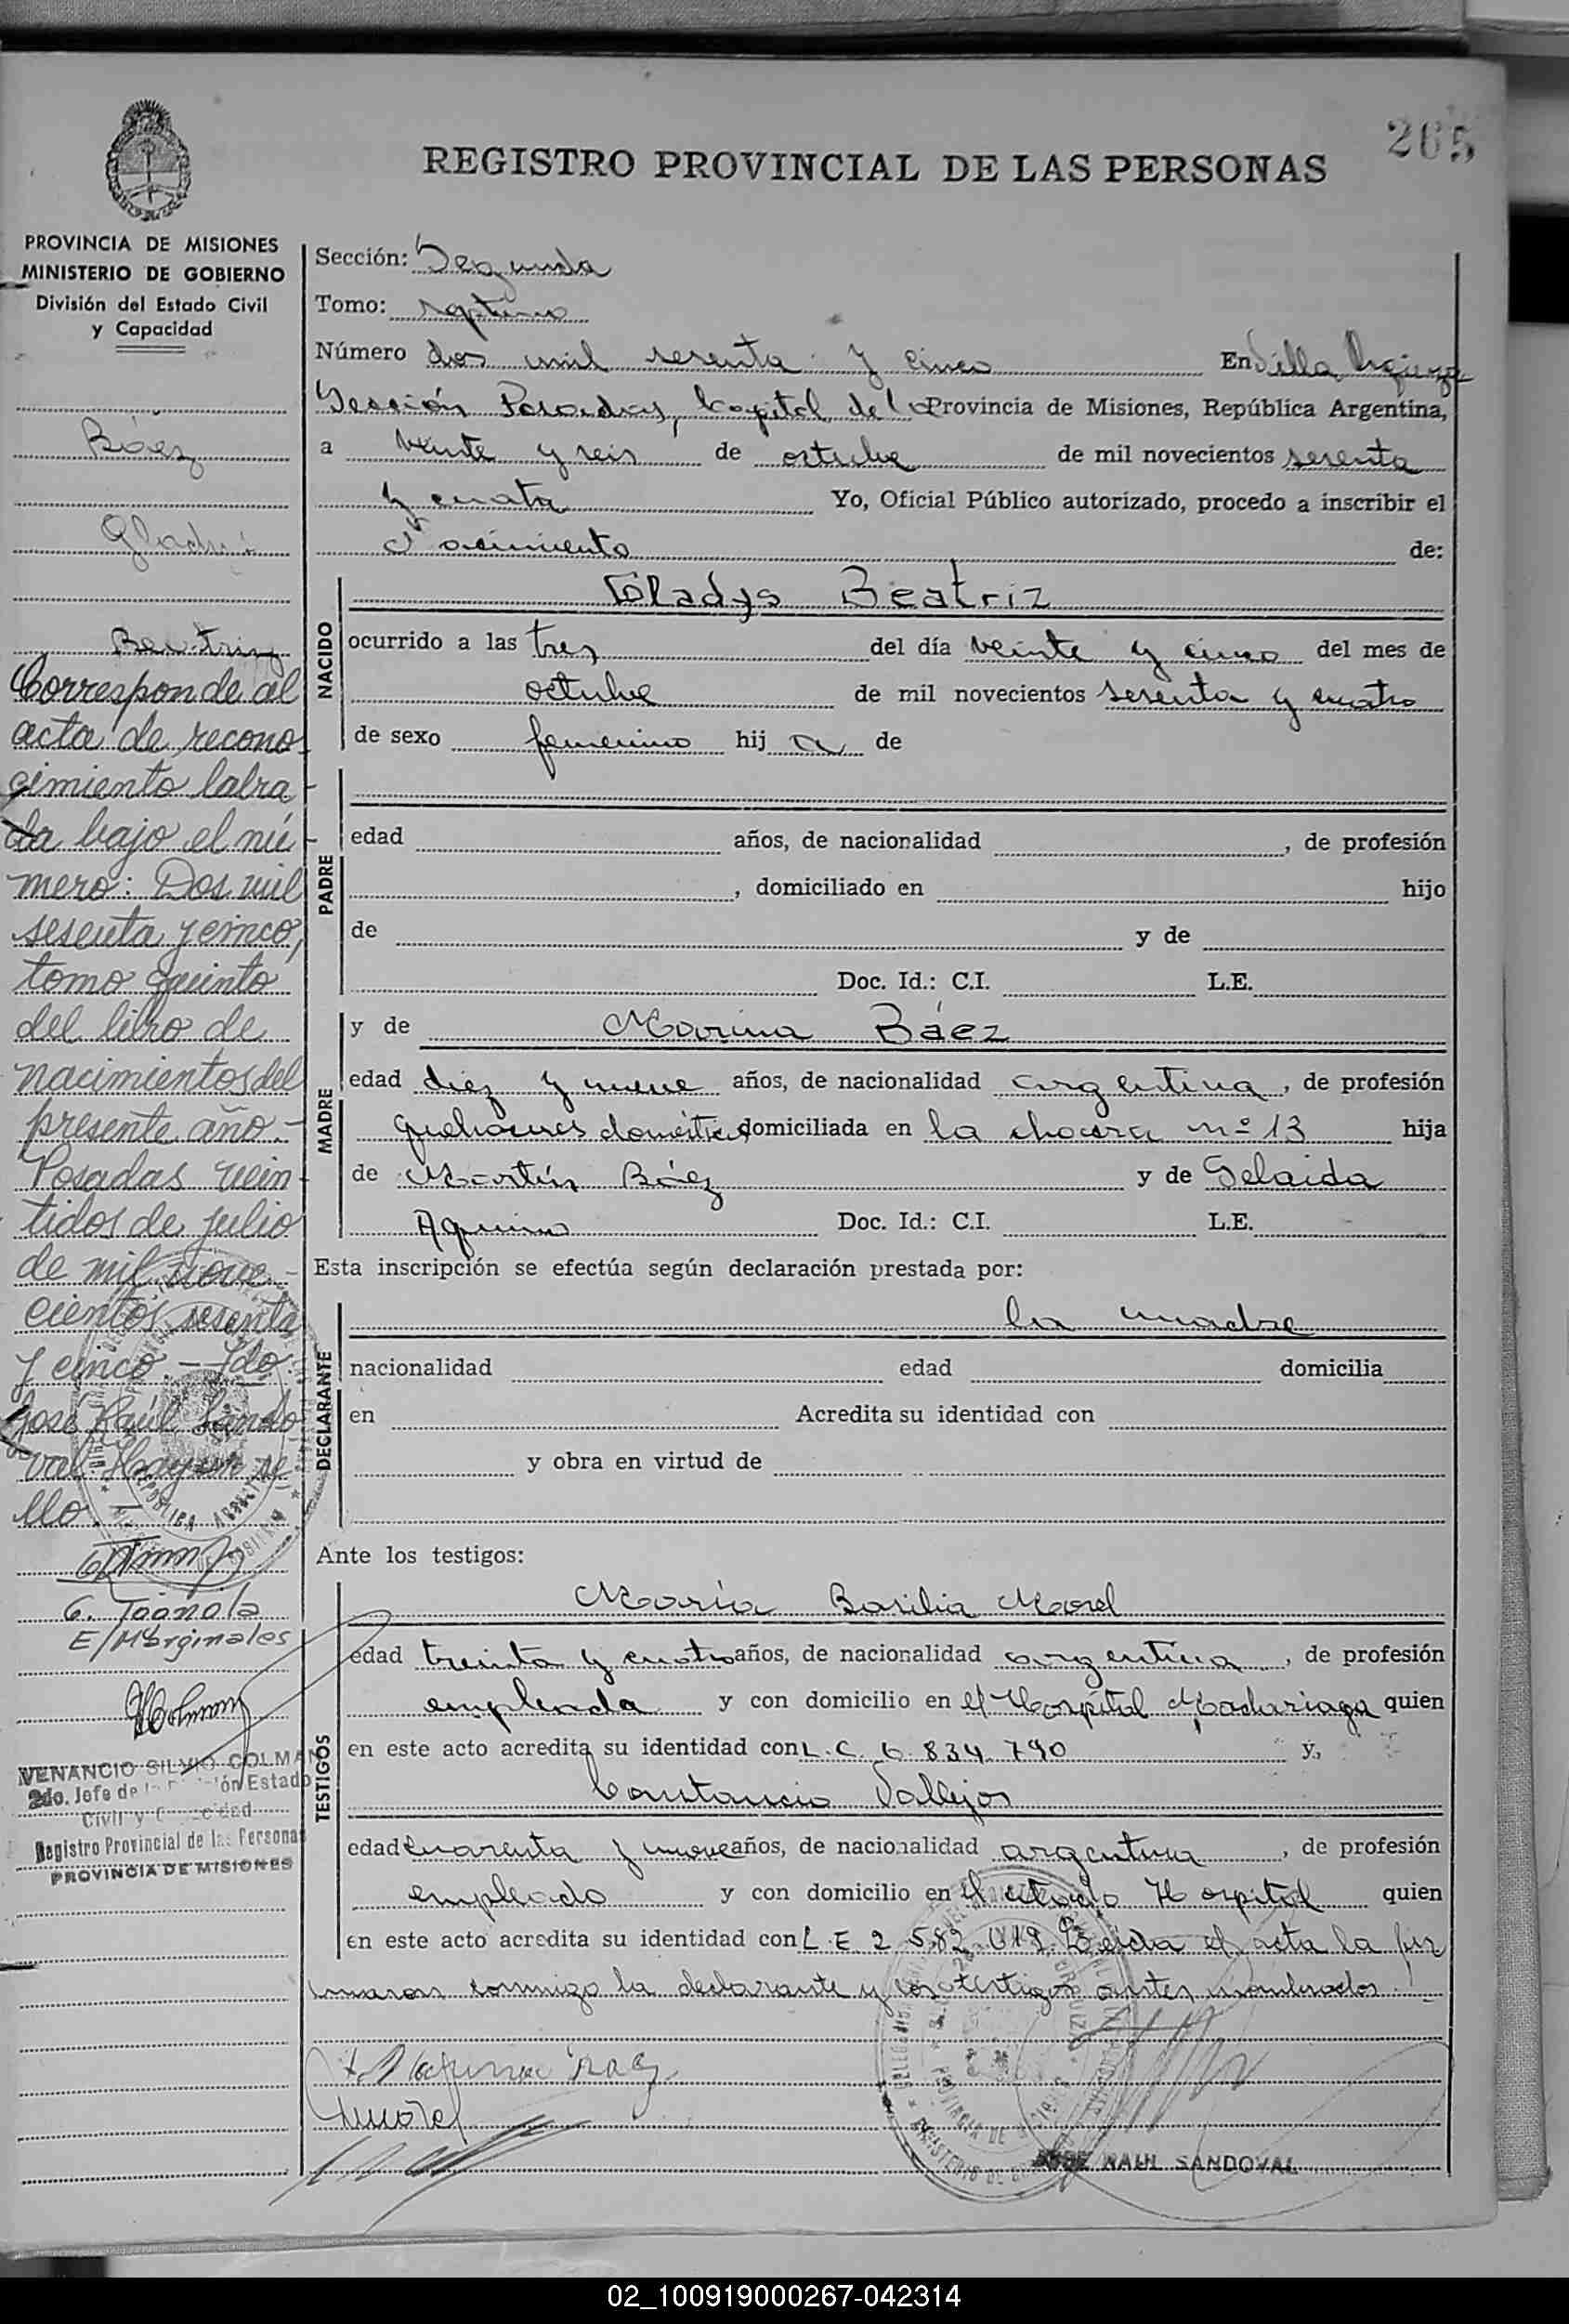 265
REGISTRO PROVINCIAL DE LAS PERSONAS
PROVINCIA DE MISIONES
MINISTERIO DE GOBIERNO
División del Estado Civil
y Capacidad
Báez
Gladys
Beatriz
Corresponde al
acta de recono
cimiento labra-
da bajo el nú-
mero: Dos mil
sesenta y cinco,
tomo quinto
del libro de
nacimientos del
presente año.-
Posadas vein-
tidos de julio
de mil nove-
cientos sesenta
y cinco.- Fdo:
José Raúl Sando
val. Hay un se-
llo.-
G. Toanola
E/Marginales
VENANCIO SILVIO COLMAN
2do. Jefe de la División Estado
Civil y Capacidad
Registro Provincial de las Personas
PROVINCIA DE MISIONES
Sección: Segunda
Tomo: septimo
Número dos mil sesenta y cinco En Villa Urquiza
Sección Posadas, Capital de la Provincia de Misiones, República Argentina,
a veinte y seis de octubre de mil novecientos sesenta
y cuatro Yo, Oficial Público autorizado, procedo a inscribir el
Nacimiento de:
NACIDO
Gladys Beatriz
ocurrido a las tres del día veinte y cinco del mes de
octubre de mil novecientos sesenta y cuatro
de sexo femenino hij a de
PADRE
edad años, de nacionalidad , de profesión
, domiciliado en hijo
de y de
Doc. Id.: C.I. L.E.
MADRE
y de Marina Báez
edad diez y nueve años, de nacionalidad argentina, de profesión
quehaceres domésticos domiciliada en la chacra nº 13 hija
de Martín Báez y de Gelaida
Aquino Doc. Id.: C.I. L.E.
Esta inscripción se efectúa según declaración prestada por:
DECLARANTE
la madre
nacionalidad edad domicilia
en Acredita su identidad con
y obra en virtud de
Ante los testigos:
TESTIGOS
María Basilia Morel
edad treinta y cuatro años, de nacionalidad argentina, de profesión
empleada y con domicilio en el Hospital Madariaga quien
en este acto acredita su identidad con L.C. 6.834.790 y,
Constancio Vallejos
edad cuarenta y nueve años, de nacionalidad argentina, de profesión
empleado y con domicilio en el citado Hospital quien
en este acto acredita su identidad con L.E. 2.582.019 Leída el acta la fir
maron conmigo la declarante y los testigos antes nombrados.
Morel
JOSE RAUL SANDOVAL
02_100919000267-042314